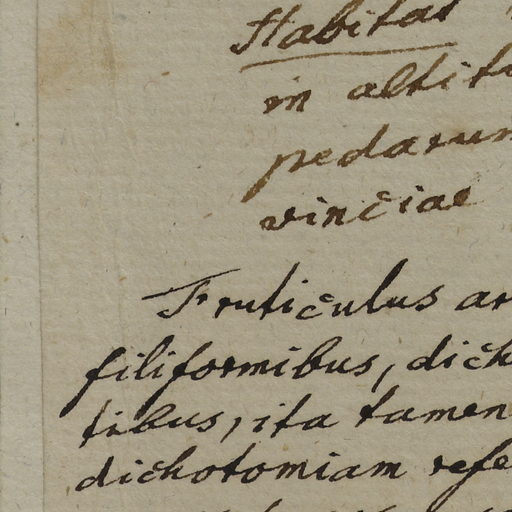 Habitat
in altit
pedarum
vinciae
Fruticulus ar
filiformibus, dich
tibus, ita tamen
dichotomiam refe